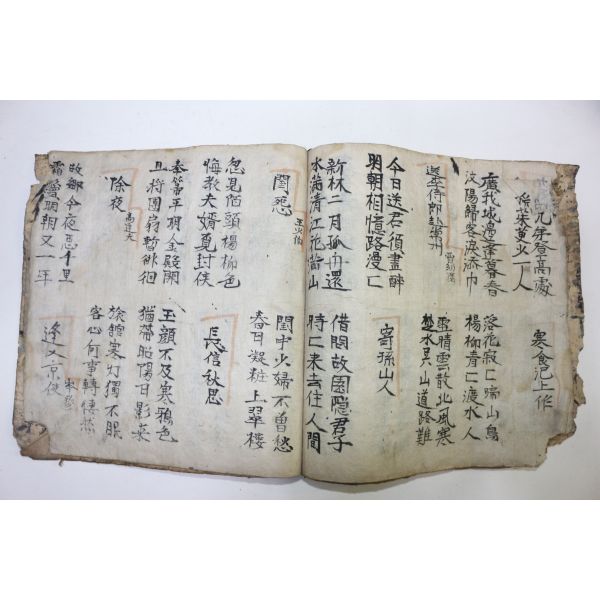 兄弟登高處
茱黄少一人
寒食汜上作
廣武城邊逢暮春
汶陽歸客淚添巾
落花寂々啼山鳥
楊柳青々渡水人
送李侍郎赴常州
雪晴雲散北風寒
楚水吳山道路難
今日送君須盡醉
明朝相憶路漫々
寄孫山人
新林二月孤舟還
水滿青江花臨山
借問故園隱君子
時々來去住人間
閨怨 王少伯
閨中少婦不曾愁
春日凝粧上翠樓
忽見陌頭楊柳色
悔教夫婿覓封侯
長信秋思
奉箒平明金殿開
且將團扇暫徘徊
玉顔不及寒鴉色
猶帶昭陽日影來
除夜 高達夫
旅館寒灯獨不眠
客心何事轉悽然
故鄉今夜思千里
霜鬢明朝又一年
逢入京使